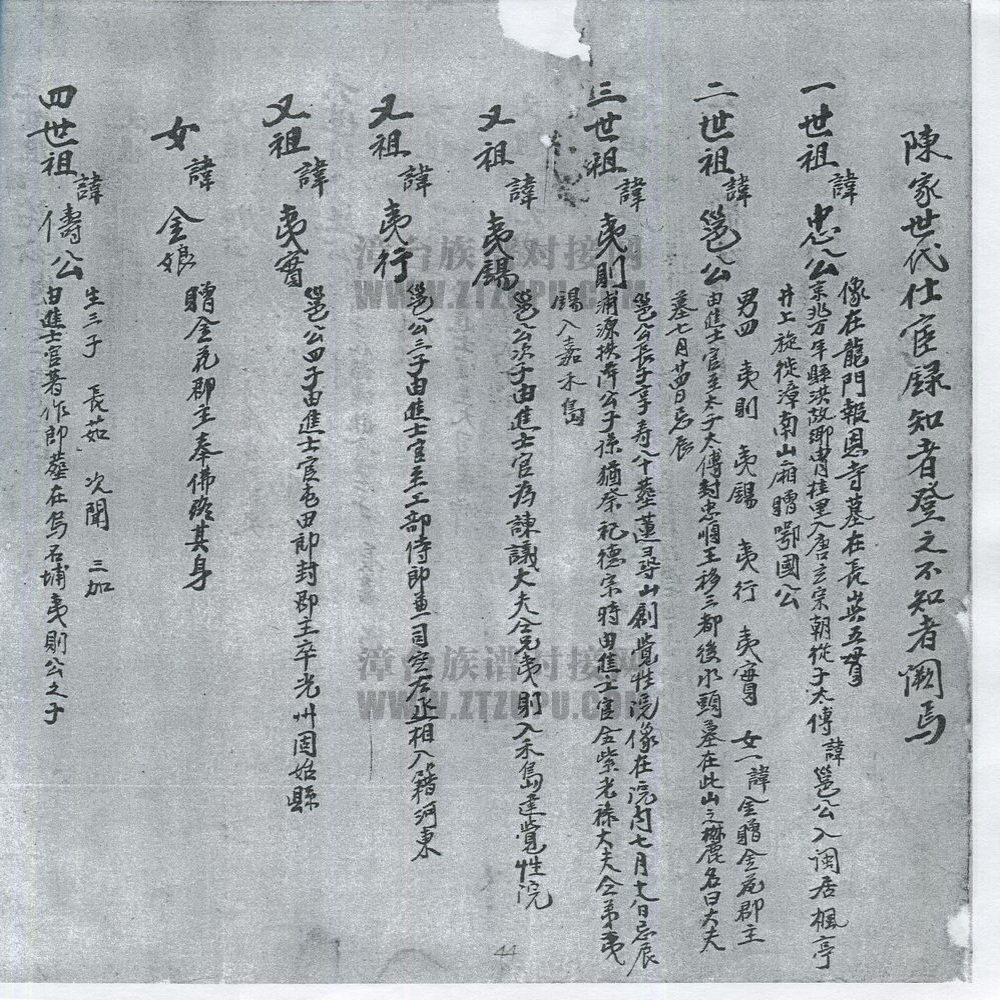 陳家世代仕宦錄知者登之不知者闕焉
一世祖諱忠公
像在龍門報恩寺墓在長興五峯
京兆万年縣洪故鄉胄桂里入唐玄宗朝從子太傅諱邕公入闽居楓亭
井上旋徙漳南山廂贈鄂國公
二世祖諱邕公
男四 夷則 夷錫 夷行 夷實 女一諱金贈金花郡主
由進士官至太子太傅封忠順王移三都後水頭墓在此山之麓名曰大夫
墓七月廿四日忌辰
三世祖諱夷則
邕公長子享寿八十葬蓮尋山創覺性院像在院内七月十八日忌辰
浦源扶序公子孫猶祭祀德宗時由進士官金紫光祿大夫仝弟夷
錫入嘉禾島
又祖諱夷錫
邕公次子由進士官為諫議大夫仝兄夷則入禾島建覺性院
又祖諱夷行
邕公三子由進士官至工部侍郎兼司空右丞相入籍河東
又祖諱夷實
邕公四子由進士官屯田郎封郡主卒光州固始縣
女諱金娘
贈金花郡主奉佛終其身
四世祖諱儔公
生三子 長茹 次聞 三加
由進士官著作郎葬在烏石埔夷則公之子
漳台族谱对接网
WWW.ZTZUPU.COM
漳台族谱对接网
WWW.ZTZUPU.COM
44